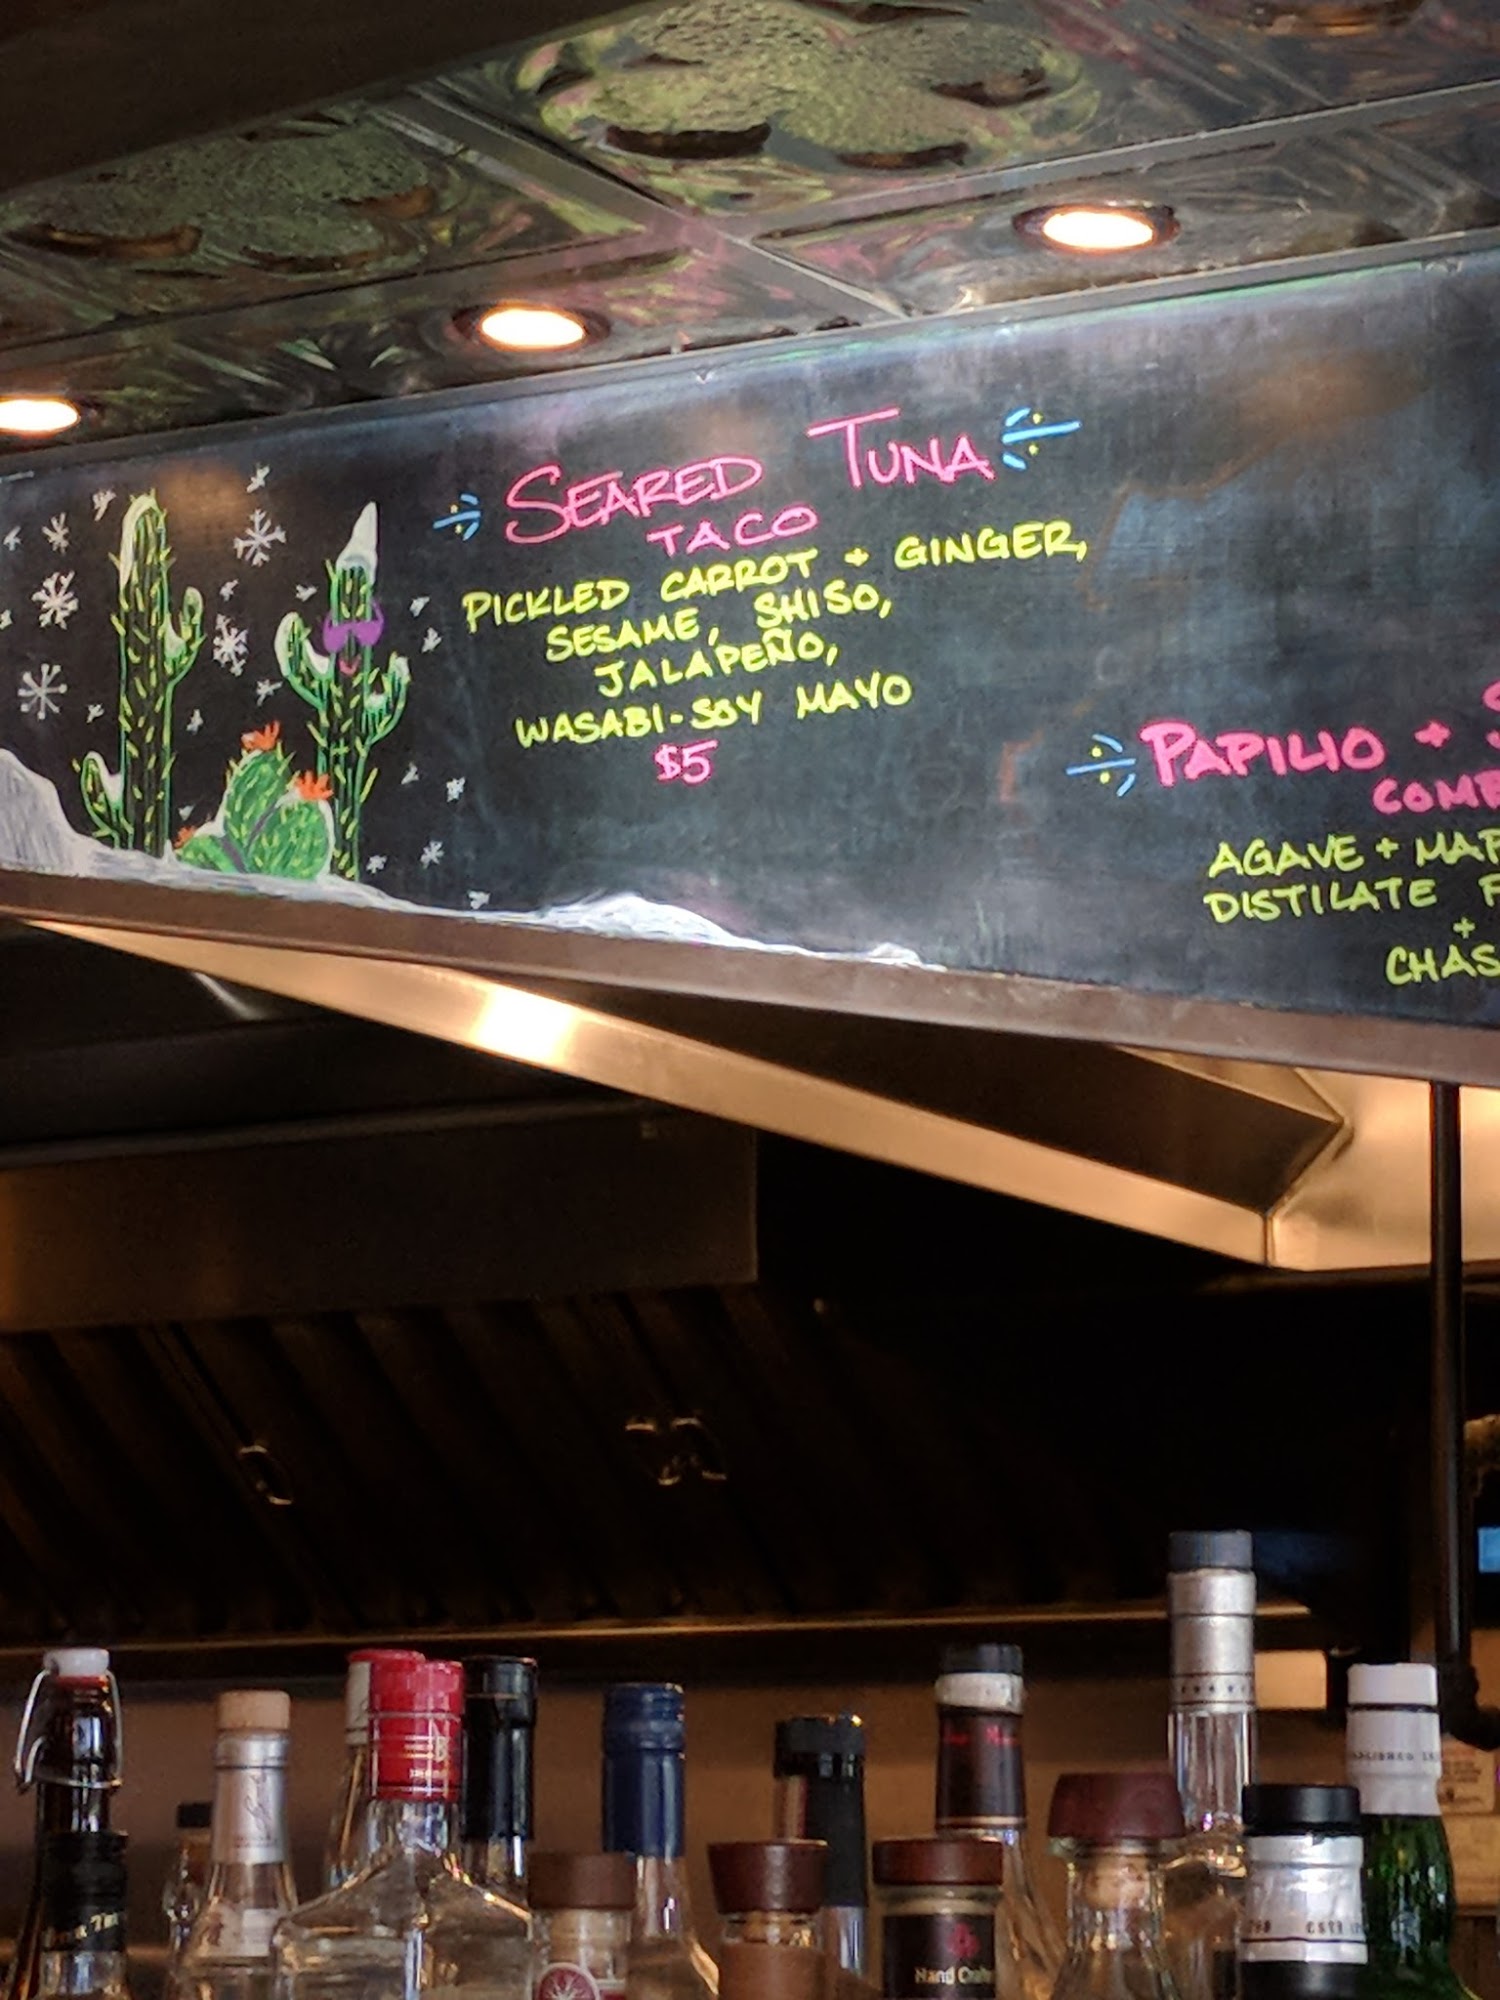 SEARED TUNA
TACO
PICKLED CARROT + GINGER,
SESAME, SHISO,
JALAPEÑO,
WASABI-SOY MAYO
$5
PAPILIO +
AGAVE +
DISTILATE
+
Hand